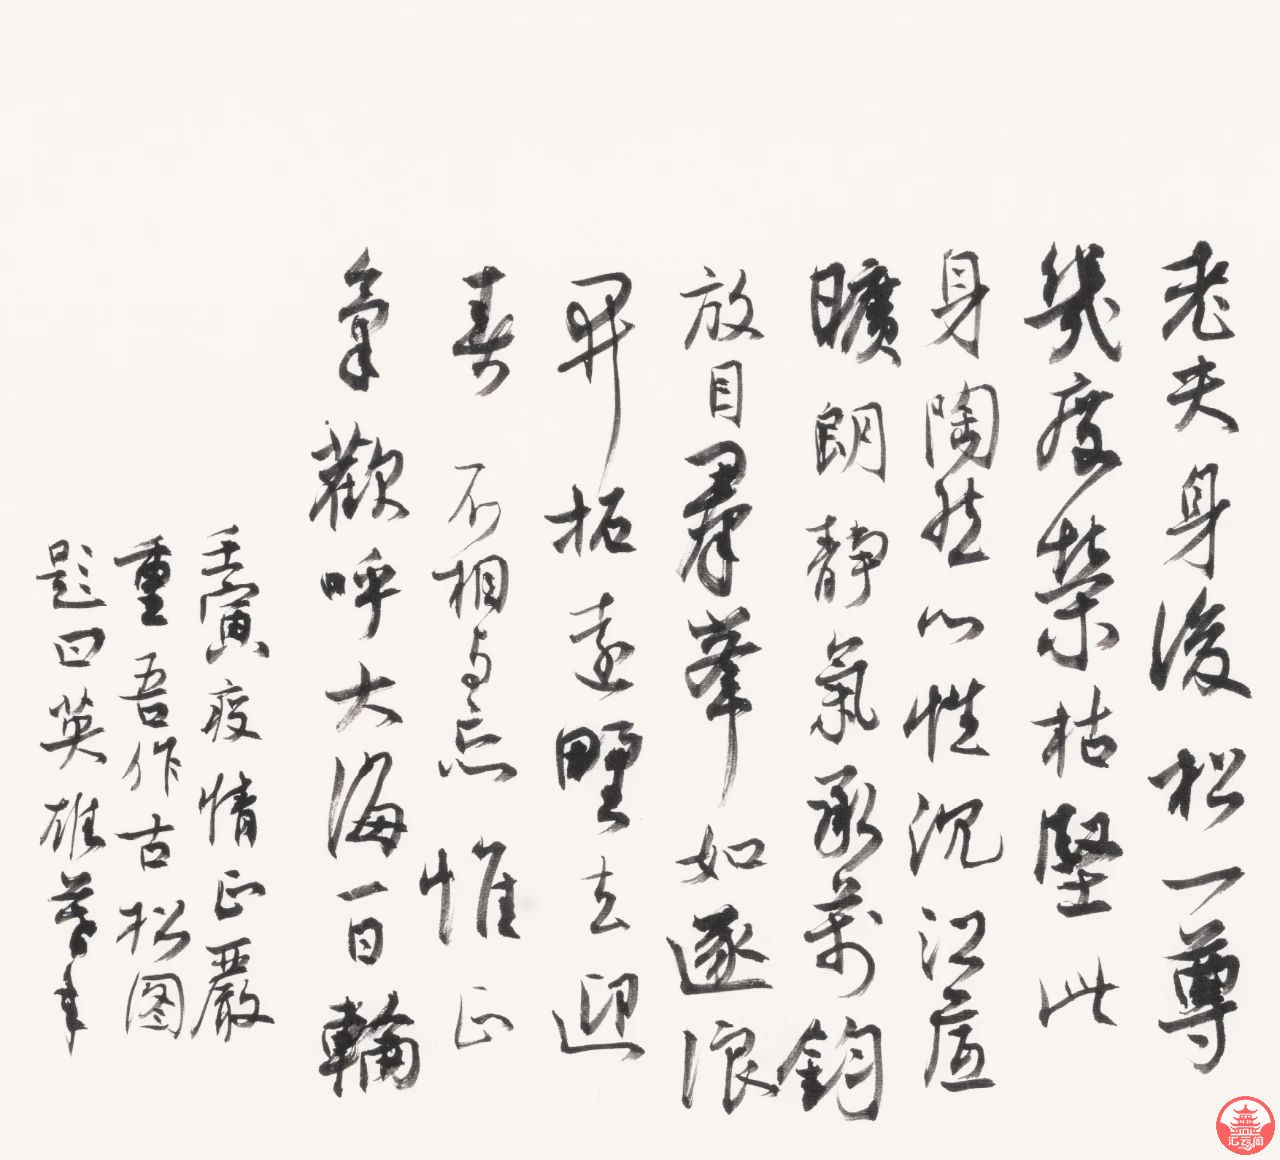 老夫身後松一尊
幾度榮枯堅此
身陶然心性沉
曠朗靜氣承萬鈞
放目羣峯如逐浪
開拓遠野去迎
春不相与忘惟正
氣歡呼大海一日輪
壬寅疫情正嚴
重吾作古松图
題曰英雄
汇云阁